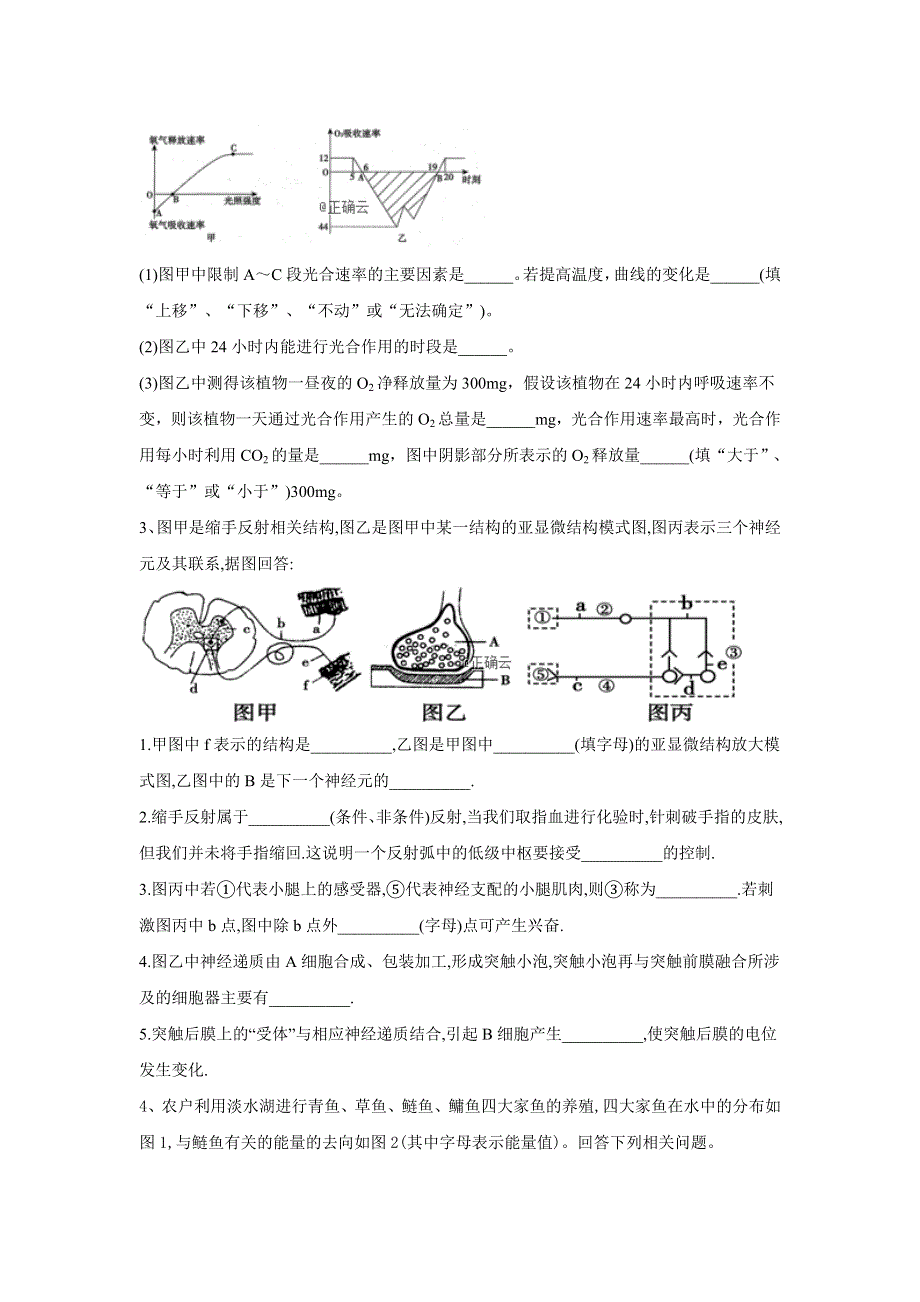 氧气释放速率
C
O
B
A
光照强度
氧气吸收速率
甲
O₂吸收速率
12
0
5
A
6
19
B
20
时刻
@正确云
44
乙
(1)图甲中限制 A～C 段光合速率的主要因素是______。若提高温度，曲线的变化是______(填
“上移”、“下移”、“不动”或“无法确定”)。
(2)图乙中 24 小时内能进行光合作用的时段是______。
(3)图乙中测得该植物一昼夜的 O₂净释放量为 300mg，假设该植物在 24 小时内呼吸速率不
变，则该植物一天通过光合作用产生的 O₂总量是______mg，光合作用速率最高时，光合作
用每小时利用 CO₂的量是______mg，图中阴影部分所表示的 O₂释放量______(填“大于”、
“等于”或“小于”)300mg。
3、图甲是缩手反射相关结构,图乙是图甲中某一结构的亚显微结构模式图,图丙表示三个神经
元及其联系,据图回答:
a
b
c
d
e
f
图甲
A
B
@正确云
图乙
①
a
②
b
③
e
d
⑤
c
④
图丙
1.甲图中 f 表示的结构是__________,乙图是甲图中__________(填字母)的亚显微结构放大模
式图,乙图中的 B 是下一个神经元的__________.
2.缩手反射属于__________(条件、非条件)反射,当我们取指血进行化验时,针刺破手指的皮肤,
但我们并未将手指缩回.这说明一个反射弧中的低级中枢要接受__________的控制.
3.图丙中若①代表小腿上的感受器,⑤代表神经支配的小腿肌肉,则③称为__________.若刺
激图丙中 b 点,图中除 b 点外__________(字母)点可产生兴奋.
4.图乙中神经递质由 A 细胞合成、包装加工,形成突触小泡,突触小泡再与突触前膜融合所涉
及的细胞器主要有__________.
5.突触后膜上的“受体”与相应神经递质结合,引起 B 细胞产生__________,使突触后膜的电位
发生变化.
4、农户利用淡水湖进行青鱼、草鱼、鲢鱼、鳙鱼四大家鱼的养殖,四大家鱼在水中的分布如
图 1,与鲢鱼有关的能量的去向如图 2(其中字母表示能量值)。回答下列相关问题。